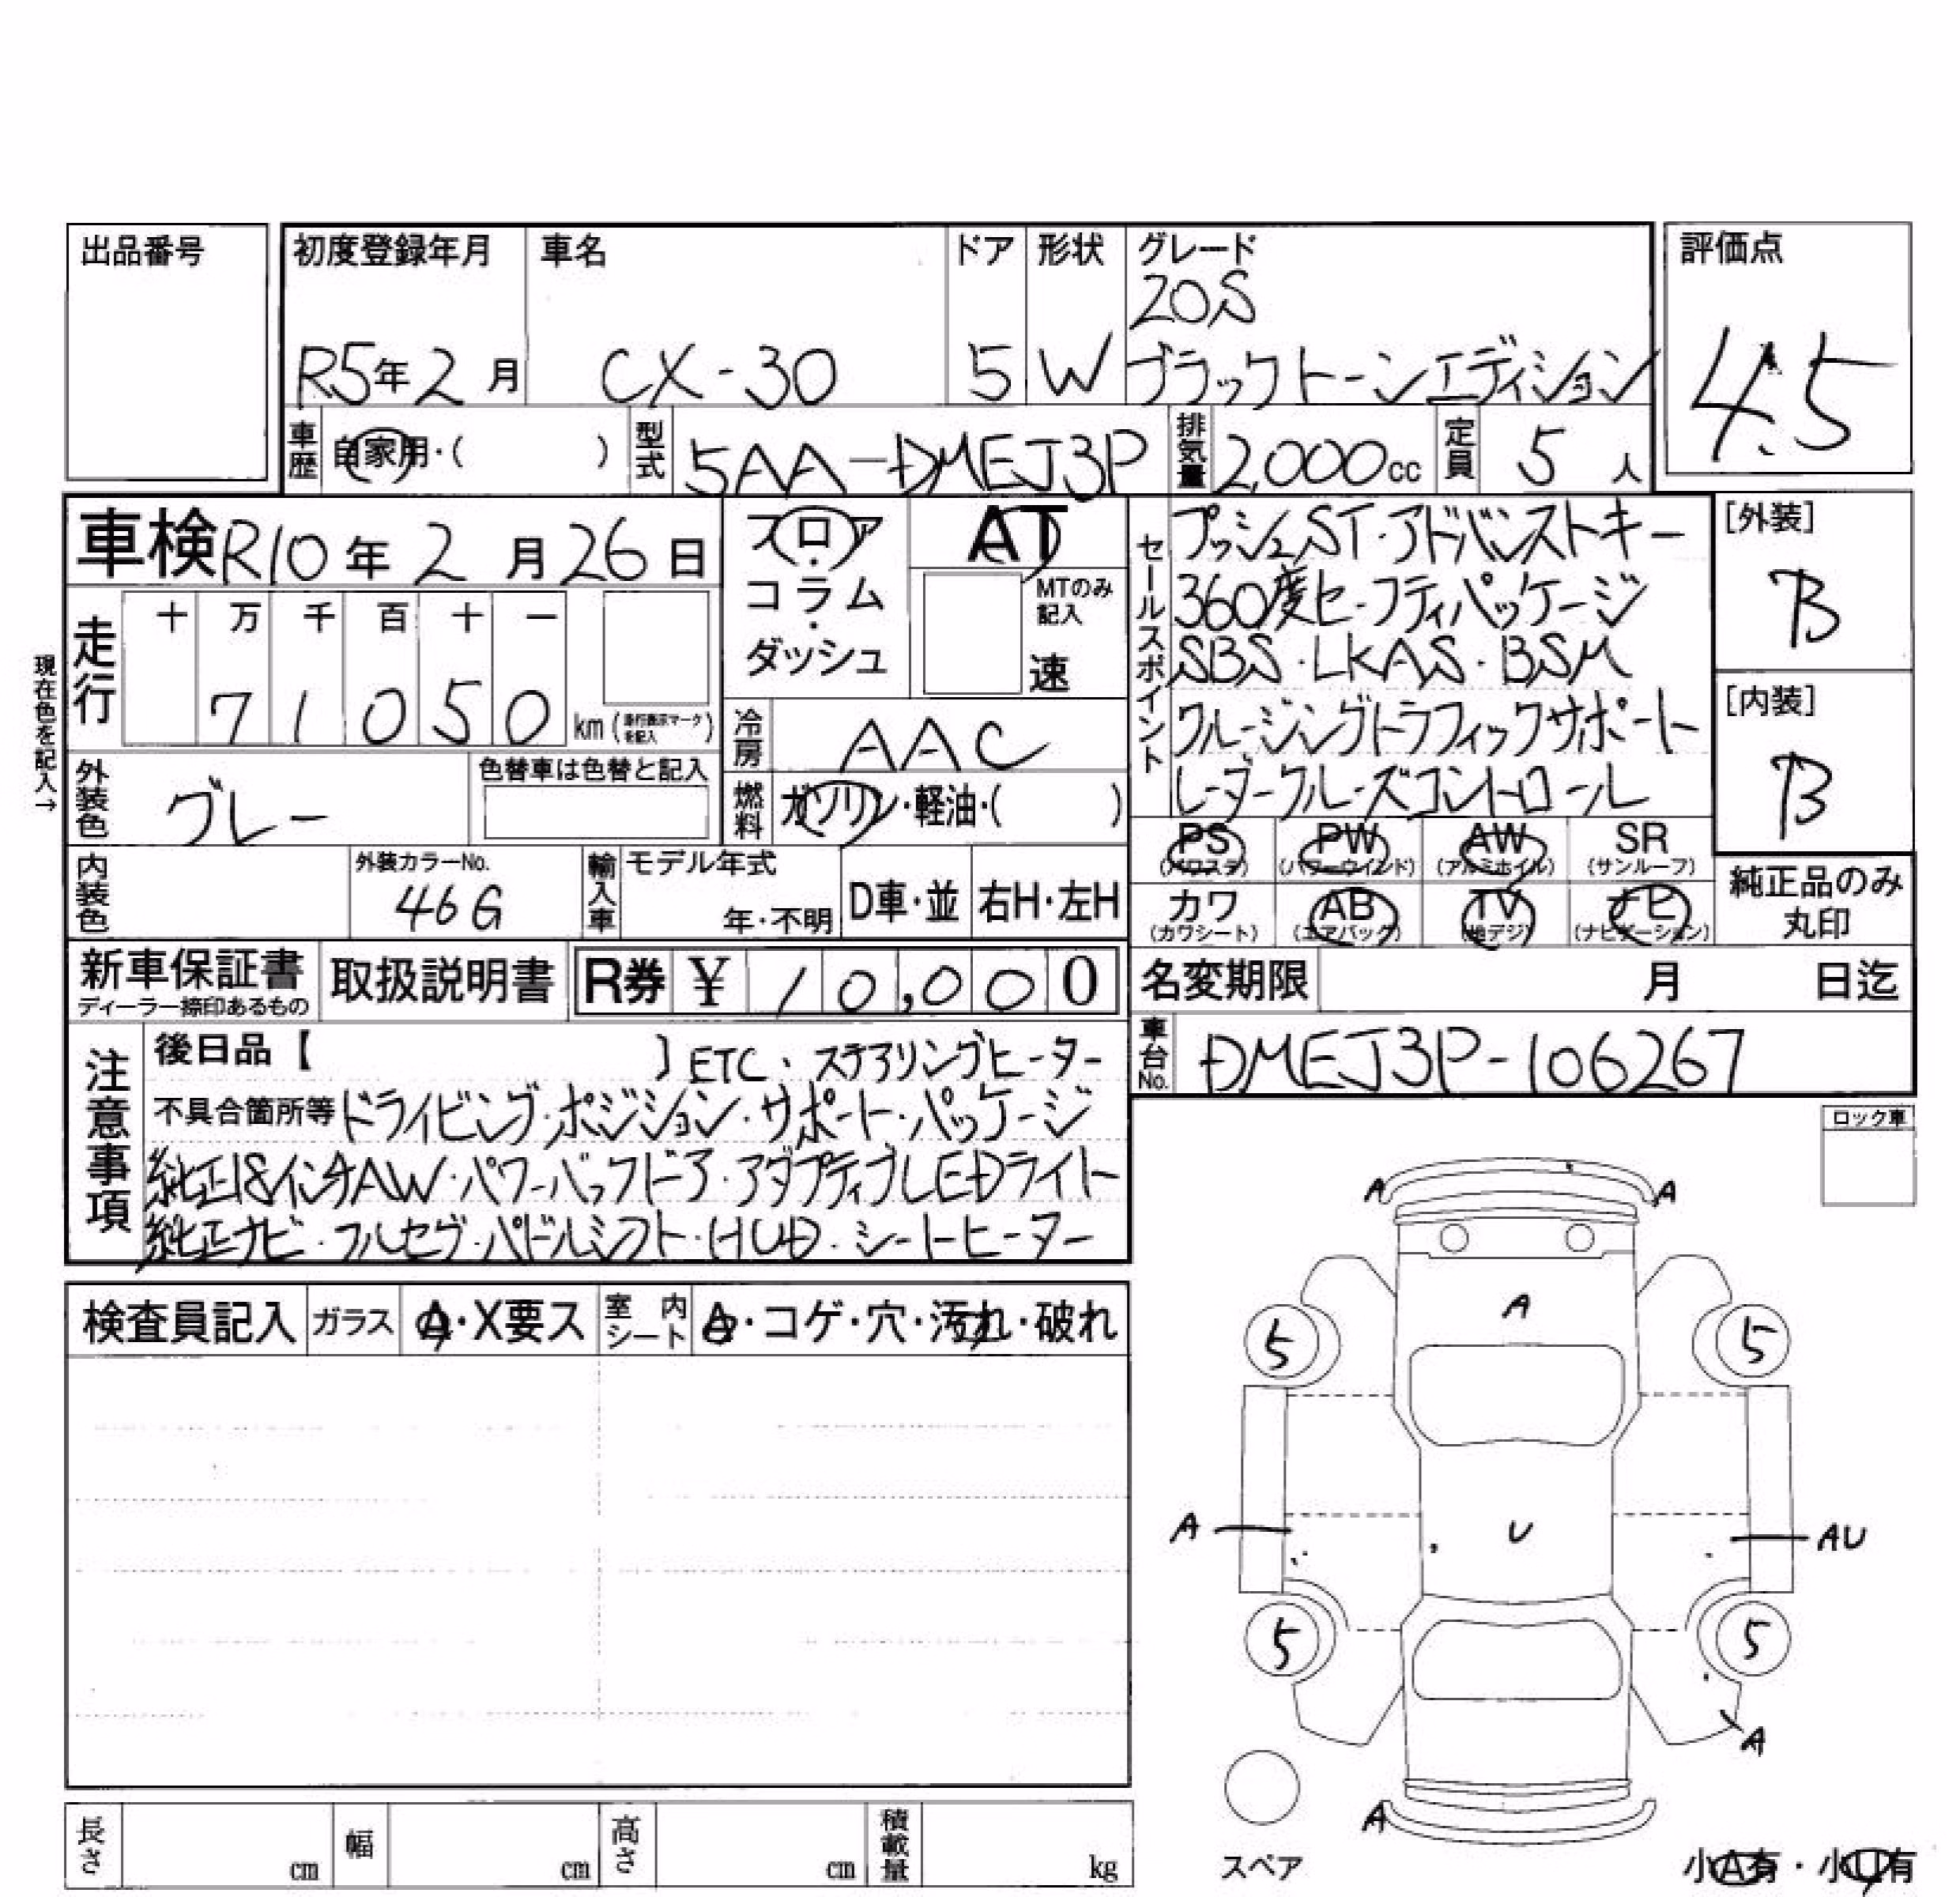 出品番号
初度登録年月 車名 ドア 形状 グレード 評価点
20S
R5年2月 CX-30 5 W ブラックトーンエディション 4.5
車歴 自家用・( ) 型式 5AA-DMEJ3P 排気量 2,000cc 定員 5人
車検 R10年2月26日
フロア・コラム・ダッシュ
AT
MTのみ記入
速
セールスポイント
プッシュST・アドバンストキー
360度セーフティパッケージ
SBS・LKAS・BSM
クルージングトラフィックサポート
レーダークルーズコントロール
[外装]
B
[内装]
B
現在色を記入→
走行 十 万 千 百 十 一
71050 km (走行表示マークを記入)
冷房 AAC
外装色 グレー 色替車は色替と記入
燃料 ガソリン・軽油・( )
PS (パワステ) PW (パワーウインド) AW (アルミホイル) SR (サンルーフ)
カワ (カワシート) AB (エアバック) TV (地デジ) ナビ (ナビゲーション)
純正品のみ丸印
内装色 外装カラーNo. 46G 輸入車 モデル年式 年・不明 D車・並 右H・左H
新車保証書 ディーラー捺印あるもの 取扱説明書 R券 ¥ 10,000
名変期限 月 日迄
車台No. DMEJ3P-106267
注意事項
後日品【 】ETC・ステアリングヒーター
不具合箇所等 ドライビング・ポジション・サポート・パッケージ
純正18インチAW・パワーバックドア・アダプティブLEDライト
純正ナビ・フルセグ・パドルシフト・HUD・シートヒーター
ロック車
検査員記入 ガラス A・X要ス 室内シート A・コゲ・穴・汚れ・破れ
A A
A
5 5
A U AU
5 5
A
A
スペア
小A有・小U有
長さ cm 幅 cm 高さ cm 積載量 kg